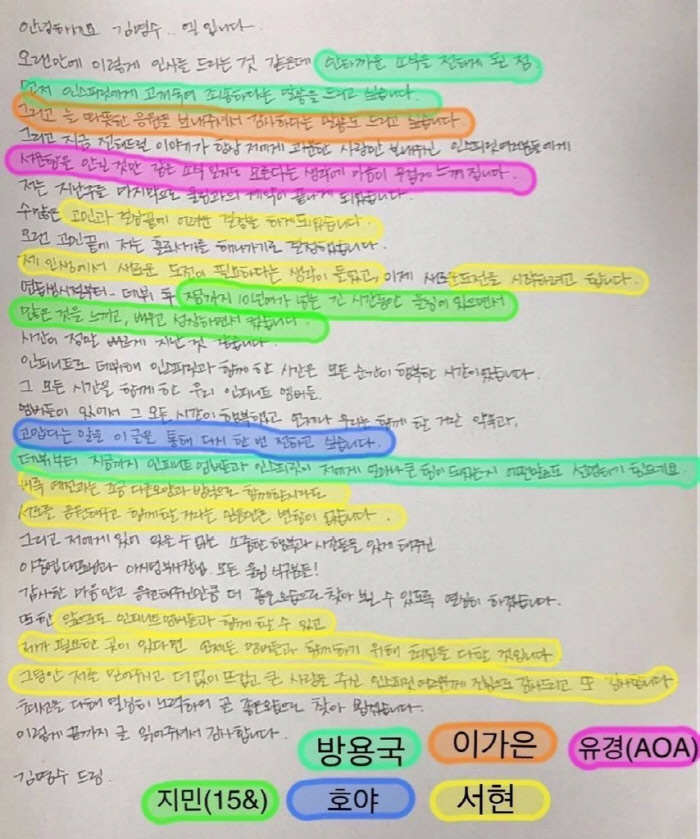 안녕하세요 김명수.. 엘 입니다.
오랜만에 이렇게 인사를 드리는 것 같은데 안타까운 소식을 전하게 된 점
먼저 인스피릿에게 고개숙여 죄송하다는 말씀을 드리고 싶습니다.
그리고 늘 따뜻한 응원을 보내주셔서 감사하다는 말씀도 드리고 싶습니다.
그리고 지금 전해드릴 이야기가 항상 저에게 과분한 사랑만 보내주신 인스피릿여러분들에게
서운함을 안길 것만 같은 소식 일지도 모른다는 생각에 마음이 무겁게 느껴집니다.
저는 지난주를 마지막으로 울림과의 계약이 끝나게 되었습니다.
수많은 고민과 결정끝에 어려운 결정을 하게되었습니다.
오랜 고민끝에 저는 홀로서기를 해나가기로 결정했습니다.
제 인생에서 새로운 도전이 필요하다는 생각이 들었고, 이제 새로운도전을 시작하려고 합니다.
연습생시절부터 데뷔 후 지금까지 10년여가 넘는 긴 시간동안 울림에 있으면서
많은 것을 느끼고, 배우고 성장하면서 컸습니다.
시간이 정말 빠르게 지난 것 같습니다.
인피니트로 데뷔해 인스피릿과 함께 한 시간은 모든 순간이 행복한 시간이었습니다.
그 모든 시간을 함께 한 우리 인피니트 멤버들.
멤버들이 있어서 그 모든 시간이 행복했고 언제나 우리는 함께 할 거란 약속과,
고맙다는 말을 이 글을 통해 다시 한 번 전하고 싶습니다.
데뷔부터 지금까지 인피니트 멤버들과 인스피릿이 저에게 얼마나 큰 힘이 되었는지 어떤말로도 설명하기 힘드네요
비록 예전과는 조금 다른모양과 방식으로 함께하겠지만
서로를 응원해주고 함께할 거라는 믿음만은 변함이 없습니다.
그리고 저에게 있어 잊을 수 없는 소중한 행복과 시간들을 있게 해주신
이중엽대표님과 이사님 모든 울림 식구분들!
감사한 마음 안고 응원해주신만큼 더 좋은모습으로 찾아 뵐 수 있도록 열심히 하겠습니다.
또한 앞으로도 인피니트멤버들과 함께 할 수 있고
제가 필요한 곳이 있다면 언제든 멤버들과 함께하기 위해 최선을 다할 것입니다
그동안 저를 믿어주시고 더 없이 뜨겁고 큰 사랑을 주신 인스피릿여러분께 진심으로 감사드리고 또 감사합니다
최선을 다해 열심히 노력하여 곧 좋은모습으로 찾아 뵙겠습니다.
이렇게 끝까지 글 읽어주셔서 감사합니다.
김명수 드림.
방용국 이가은 유경(AOA)
지민(15&) 호야 서현